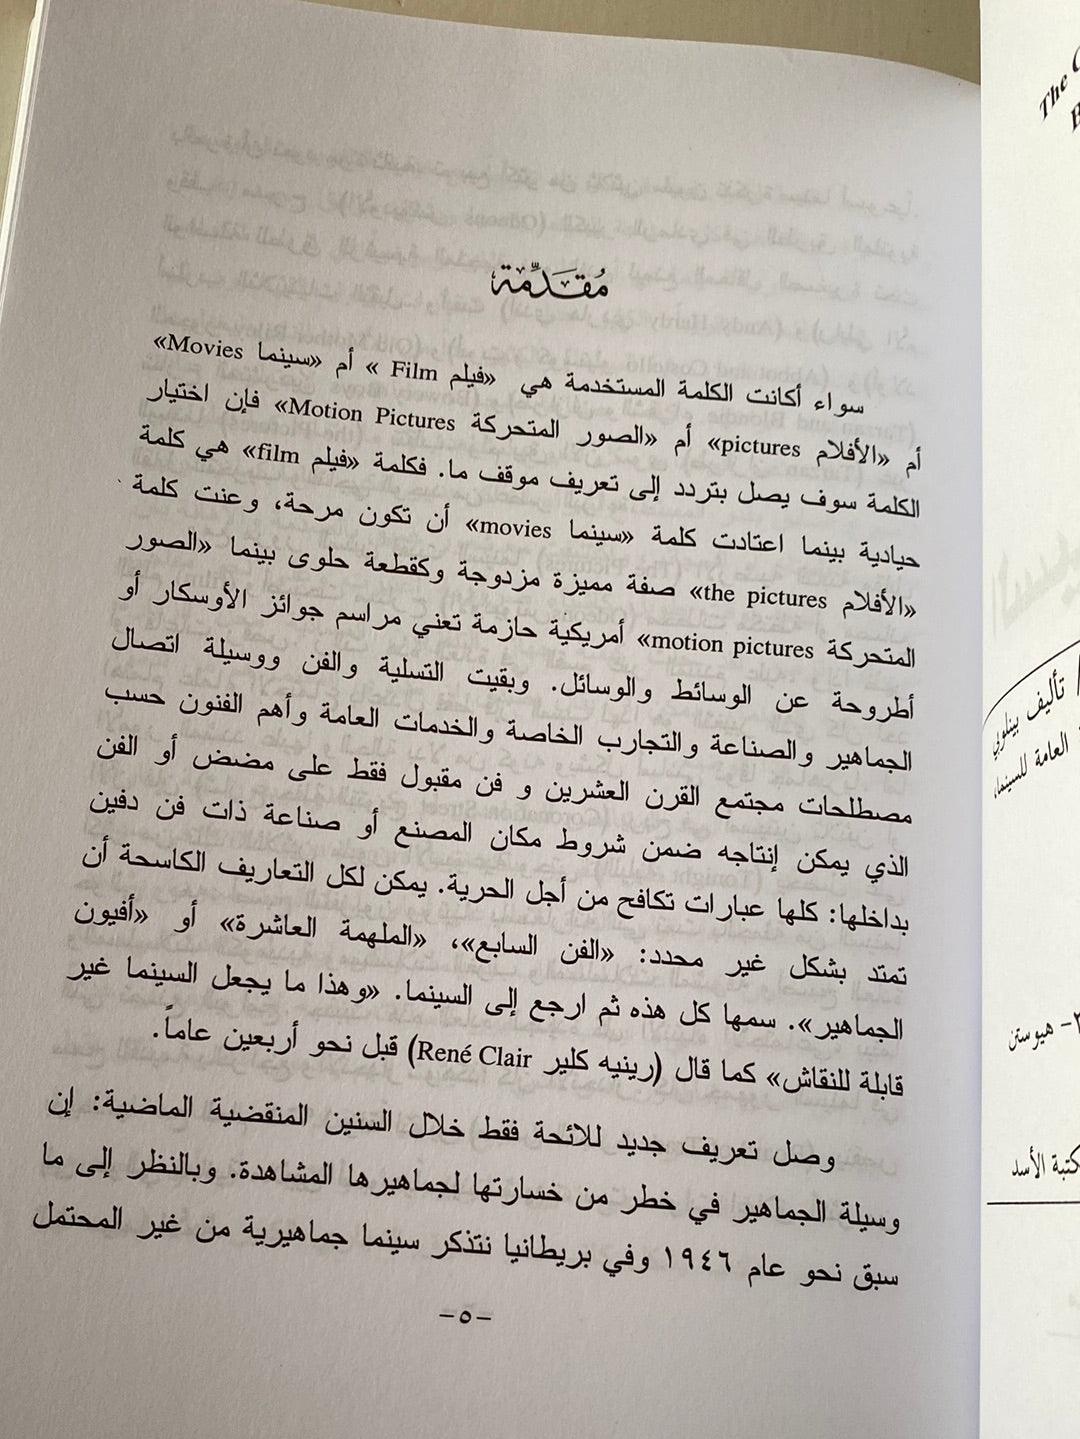 مُقَدِّمَة
سواء أكانت الكلمة المستخدمة هي «فيلم Film » أم «سينما Movies»
أم «الأفلام pictures» أم «الصور المتحركة Motion Pictures» فإن اختيار
الكلمة سوف يصل بتردد إلى تعريف موقف ما. فكلمة «فيلم film» هي كلمة
حيادية بينما اعتادت كلمة «سينما movies» أن تكون مرحة، وعنت كلمة
«الأفلام the pictures» صفة مميزة مزدوجة وكقطعة حلوى بينما «الصور
المتحركة motion pictures» أمريكية حازمة تعني مراسم جوائز الأوسكار أو
أطروحة عن الوسائط والوسائل. وبقيت التسلية والفن ووسيلة اتصال
الجماهير والصناعة والتجارب الخاصة والخدمات العامة وأهم الفنون حسب
مصطلحات مجتمع القرن العشرين و فن مقبول فقط على مضض أو الفن
الذي يمكن إنتاجه ضمن شروط مكان المصنع أو صناعة ذات فن دفين
بداخلها: كلها عبارات تكافح من أجل الحرية. يمكن لكل التعاريف الكاسحة أن
تمتد بشكل غير محدد: «الفن السابع»، «الملهمة العاشرة» أو «أفيون
الجماهير». سمها كل هذه ثم ارجع إلى السينما. «وهذا ما يجعل السينما غير
قابلة للنقاش» كما قال (رينيه كلير René Clair) قبل نحو أربعين عاماً.
وصل تعريف جديد للائحة فقط خلال السنين المنقضية الماضية: إن
وسيلة الجماهير في خطر من خسارتها لجماهيرها المشاهدة. وبالنظر إلى ما
سبق نحو عام ١٩٤٦ وفي بريطانيا نتذكر سينما جماهيرية من غير المحتمل
-٥-
The
تأليف بينلوبي
العامة للسينما
هيوستن
كتبة الأسد